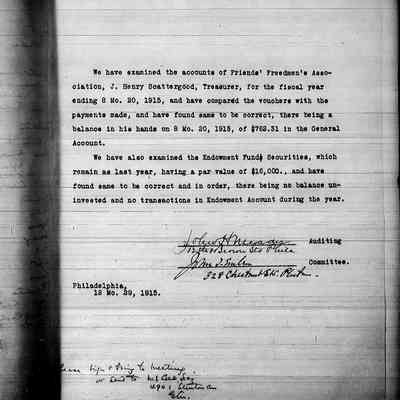 We have examined the accounts of Friends' Freedmen's Asso-
ciation, J. Henry Scattergood, Treasurer, for the fiscal year
ending 8 Mo. 20, 1915, and have compared the vouchers with the
payments made, and have found same to be correct, there being a
balance in his hands on 8 Mo. 20, 1915, of $762.31 in the General
Account.
We have also examined the Endowment Funds Securities, which
remain as last year, having a par value of $16,000., and have
found same to be correct and in order, there being no balance un-
invested and no transactions in Endowment Account during the year.
John H Auditing
St Phila
John J. Committee.
328 Chestnut St. Phila.
Philadelphia,
12 Mo. 29, 1915.
sign & bring to meeting
or send to
Gtn.